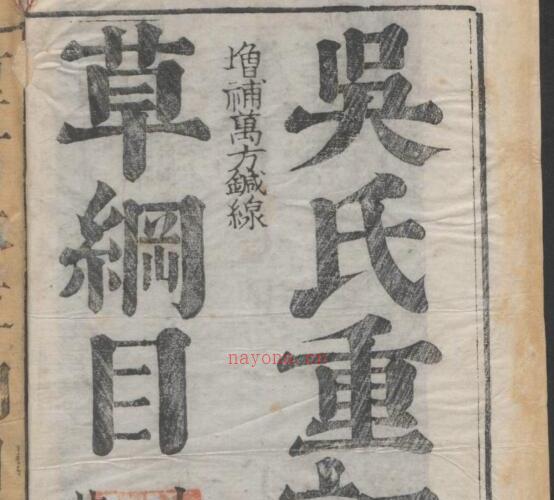 吳氏重
增補萬方鍼線
草綱目
nayona.cn